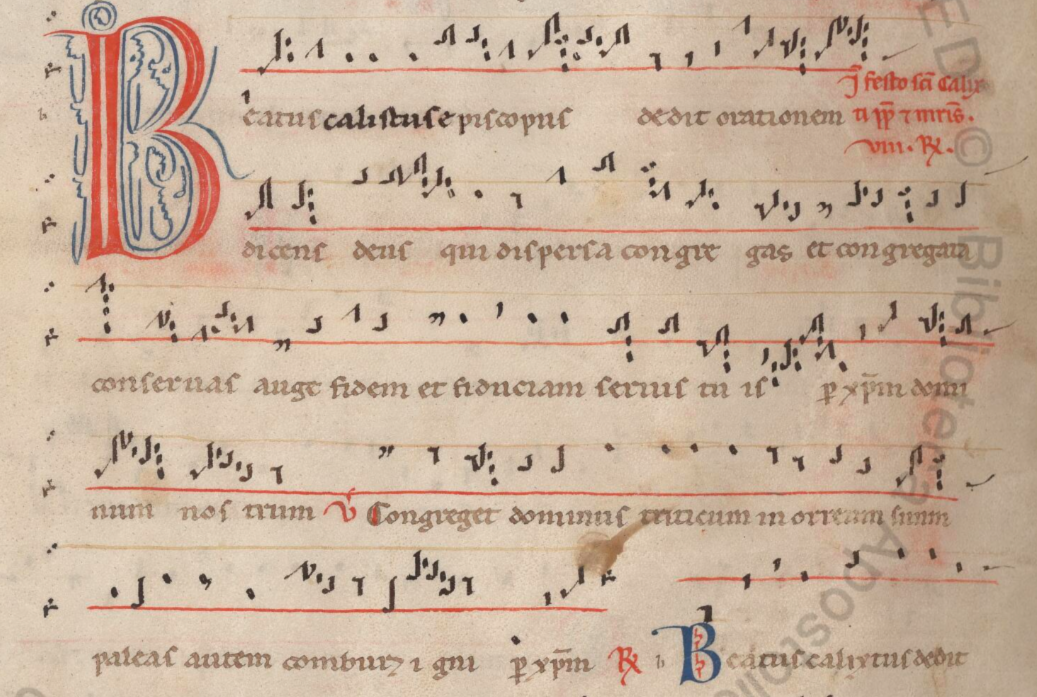 Beatus calistus episcopus dedit orationem
J festo sci Calix
ti pp ⁊ mris.
viii. R.
dicens deus qui dispersa congre gas et congregata
conseruas auge fidem et fiduciam seruis tu is p xpm domi
num nos trum V Congreget dominus triticum in orreum suum
paleas autem comburꝫ i gni p xpm R Beatus calixtus dedit
ED ©
Biblioteca Apostolic